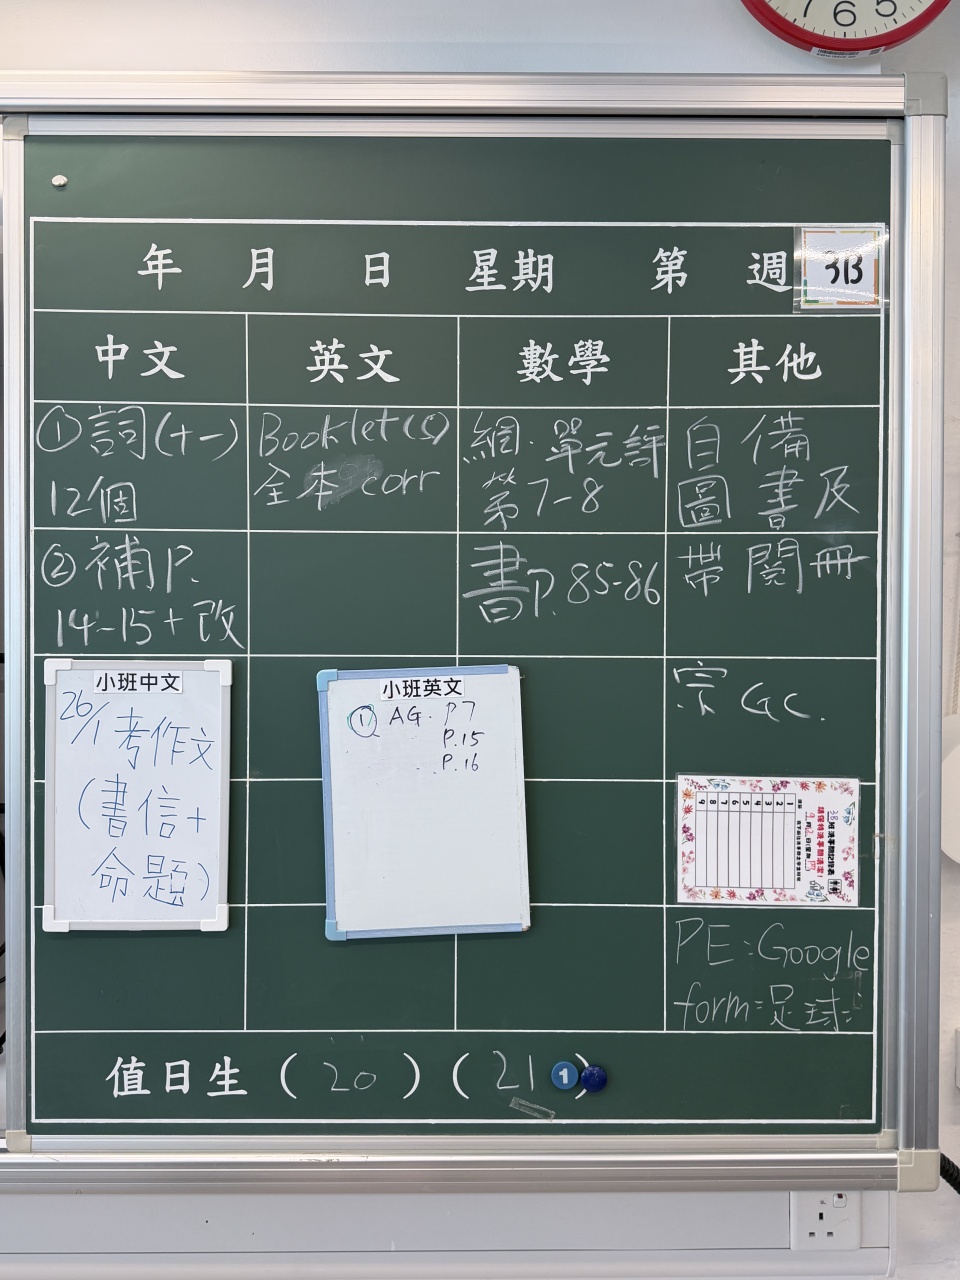 7 6 5
年 月 日 星期 第 週 3B
中文 英文 數學 其他
①詞(十一)
12個
Booklet(5)
全本 corr
網.單元評
第7-8
自備
圖書及
②補P.
14-15+改
書P.85-86
帶閱冊
小班中文
26/1考作文
(書信+
命題)
小班英文
① AG. P7
P.15
P.16
宗 GC.
3B班洗手間記錄表
請保持洗手間清潔!
1
2
3
4
5
6
7
8
9
PE:Google
form:足球
值日生(20)(21)
1